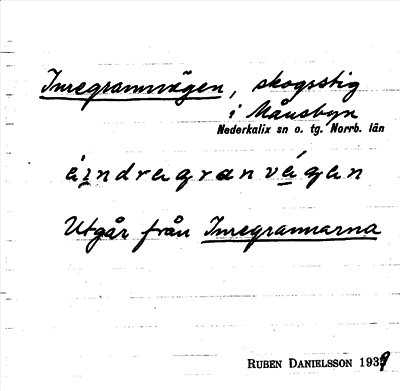 Inregrannvägen, skogsstig
i Månsbyn
Nederkalix sn o. tg. Norrb. län
éindregranvégen
Utgår från Inregrannarna
RUBEN DANIELSSON 1939